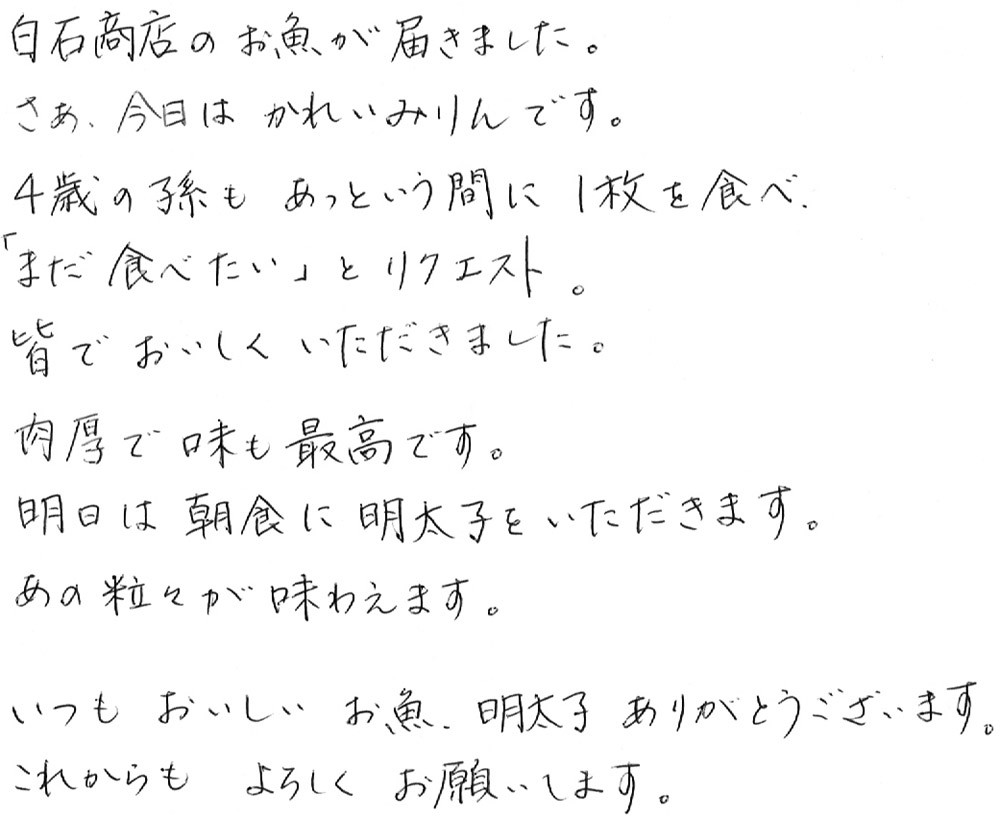 白石商店のお魚が届きました。
さあ、今日は かれいみりんです。
4歳の孫も あっという間に 1枚を食べ、
「まだ食べたい」とリクエスト。
皆で おいしく いただきました。
肉厚で 味も最高です。
明日は 朝食に 明太子を いただきます。
あの粒々が 味わえます。
いつも おいしい お魚、明太子 ありがとうございます。
これからも よろしく お願いします。